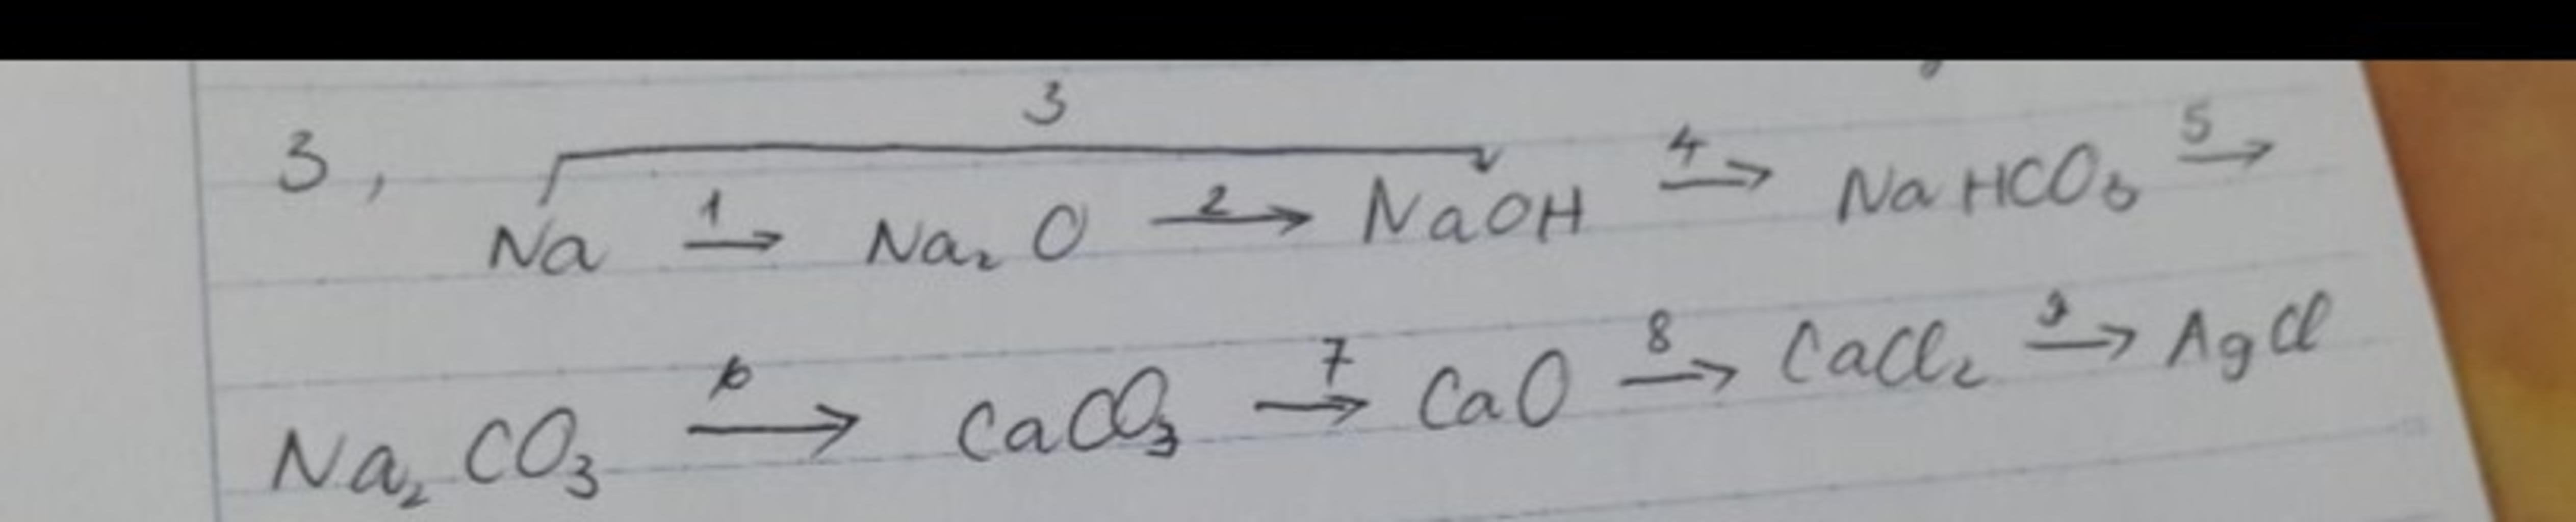 3
3, Na 1→ Na₂O 2→ NaOH 4→ NaHCO₃ 5→
Na₂CO₃ 6→ CaCO₃ 7→ CaO 8→ CaCl₂ 9→ AgCl